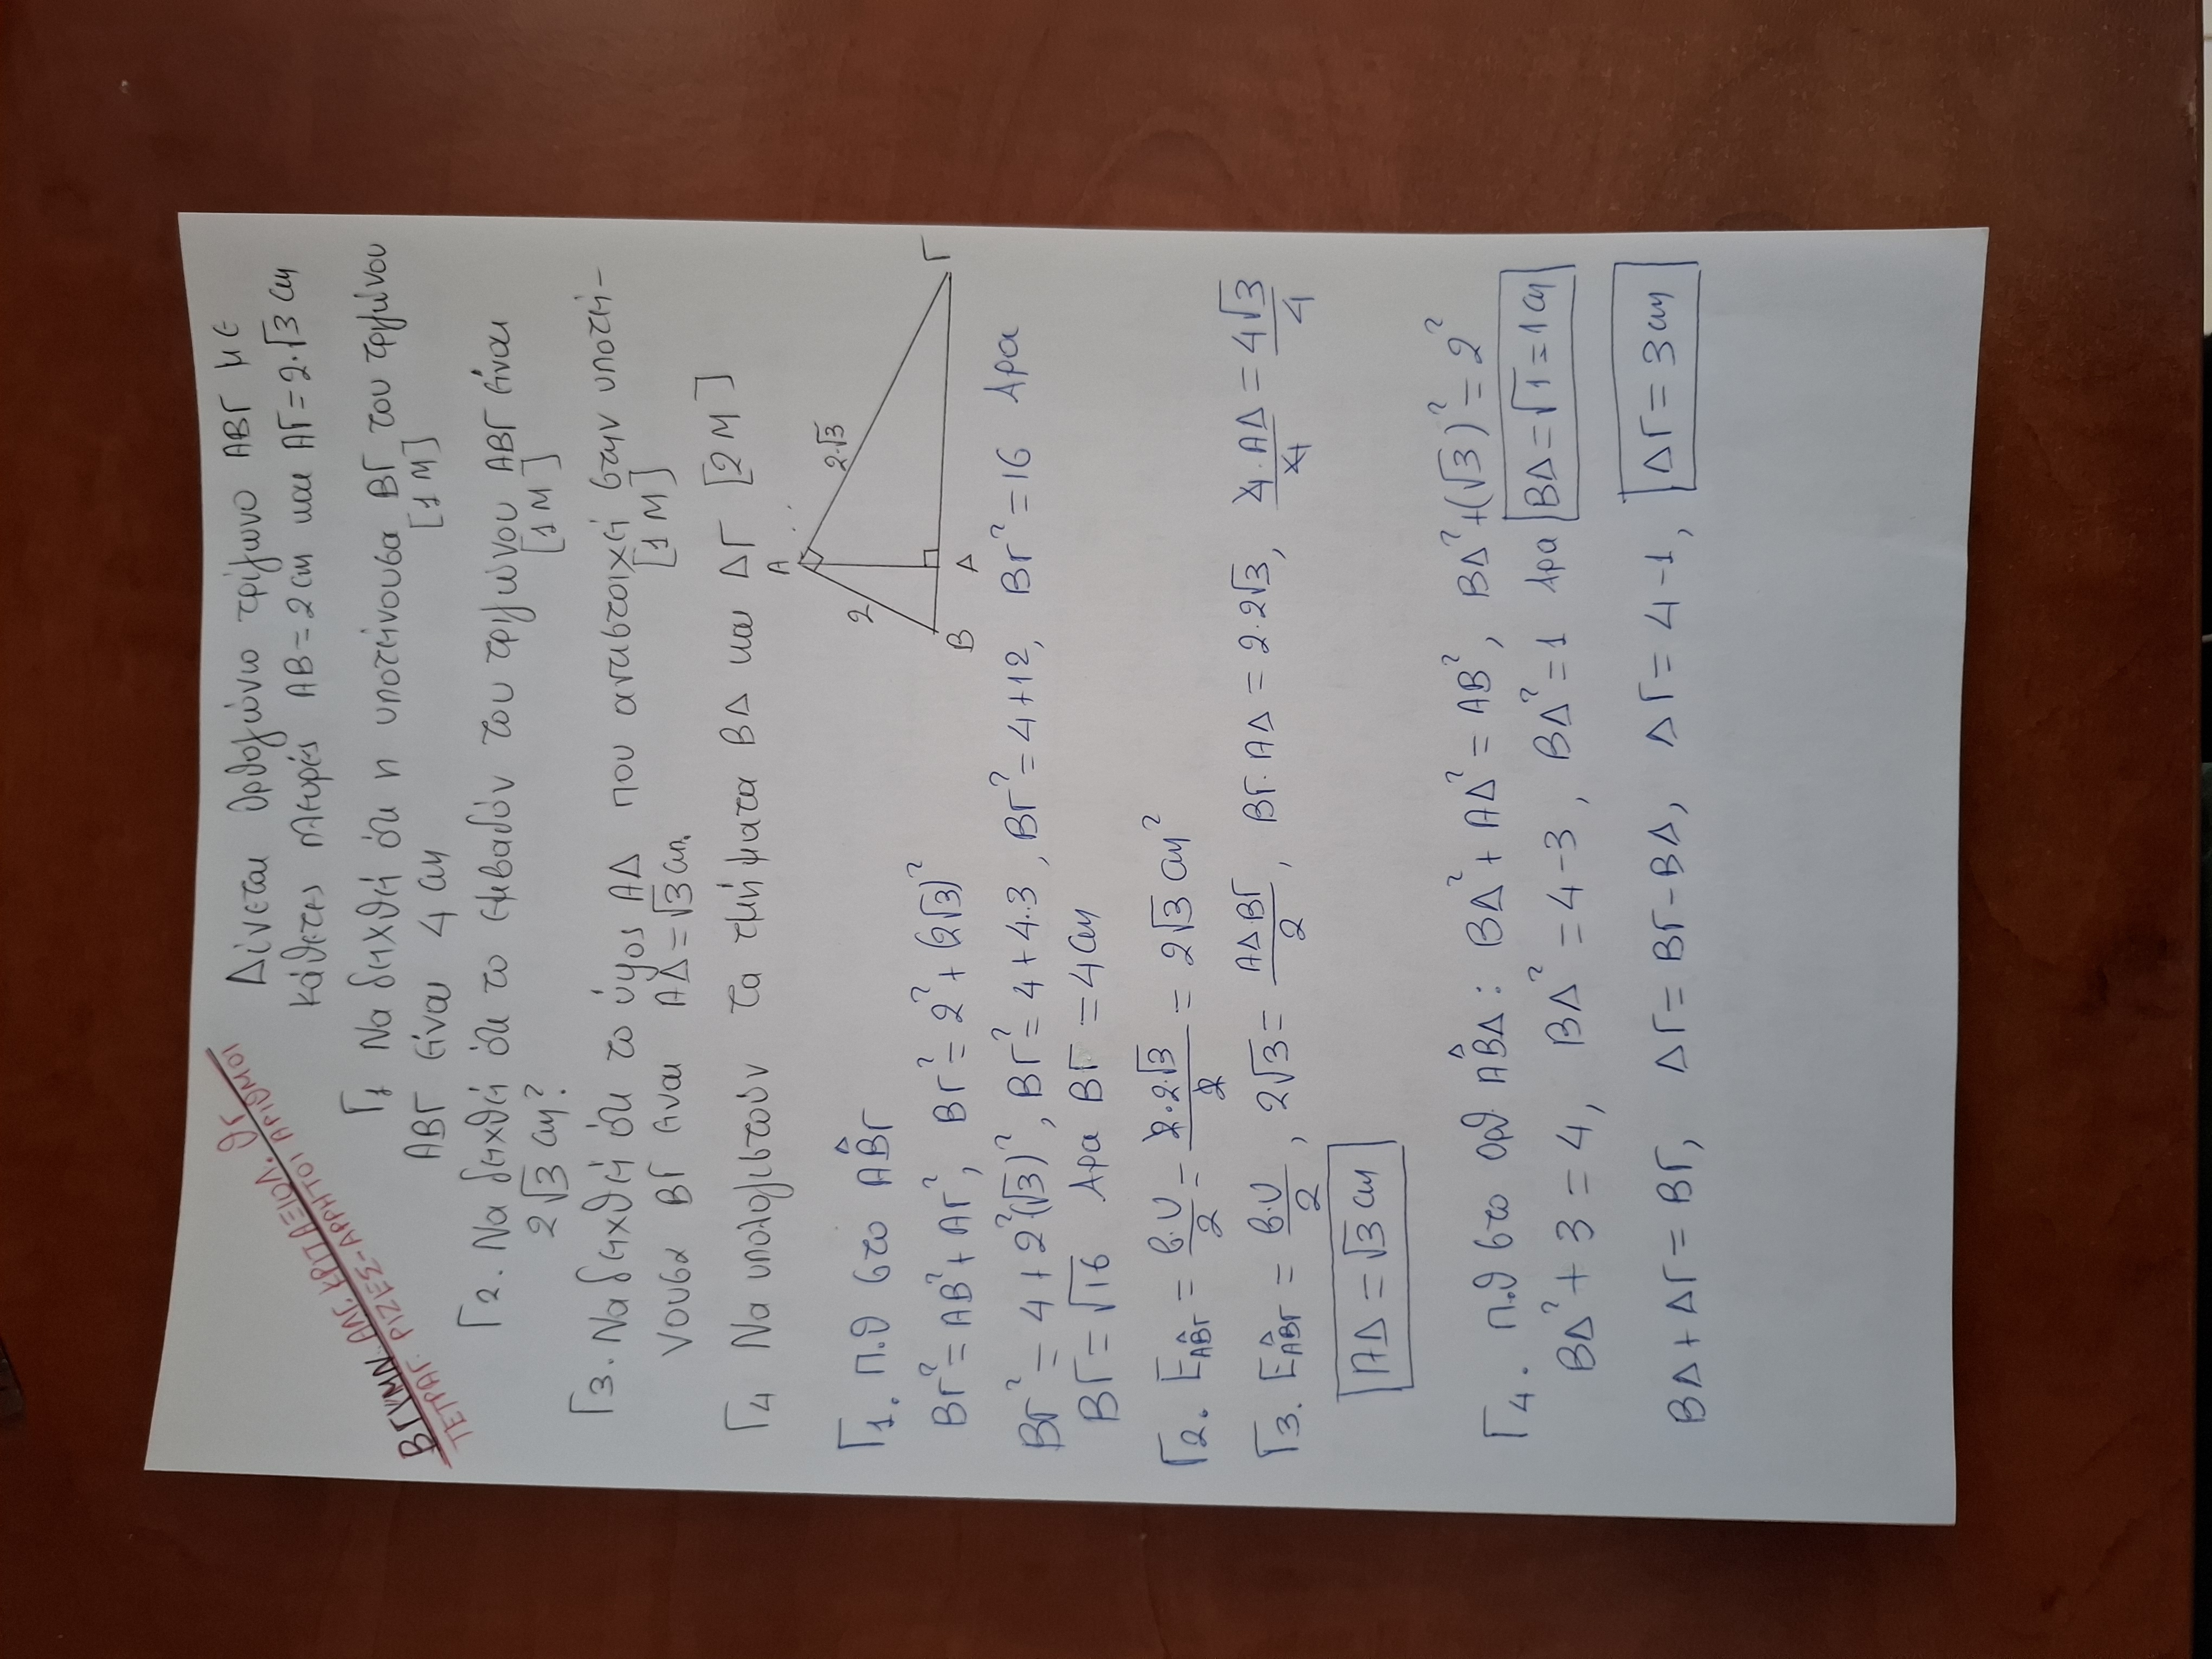 Β ΓΥΜΝ. ΑΛΓ. ΚΡΙΤ ΑΞΙΟΛ. Θέ
ΤΕΤΡΑΓ. ΡΙΖΕΣ-ΑΡΡΗΤΟΙ ΑΡΙΘΜΟΙ
Δίνεται ορθογώνιο τρίγωνο ΑΒΓ με
κάθετες πλευρές ΑΒ=2cm και ΑΓ=2·√3 cm
Γ1 Να δειχθεί ότι η υποτείνουσα ΒΓ του τριγώνου
ΑΒΓ είναι 4 cm [1 Μ]
Γ2. Να δειχθεί ότι το εμβαδόν του τριγώνου ΑΒΓ είναι
2√3 cm² [1 Μ]
Γ3. Να δειχθεί ότι το ύψος ΑΔ που αντιστοιχεί στην υποτεί-
νουσα ΒΓ είναι ΑΔ=√3 cm. [1 Μ]
Γ4 Να υπολογιστούν τα τμήματα ΒΔ και ΔΓ [2 Μ]
Α
2
2·√3
Β Δ Γ
Γ1. Π.Θ στο ΑΒ̂Γ
ΒΓ² = ΑΒ² + ΑΓ², ΒΓ² = 2² + (2√3)²
ΒΓ² = 4 + 2²(√3)², ΒΓ² = 4 + 4·3, ΒΓ² = 4+12, ΒΓ² = 16 Άρα
ΒΓ = √16 Άρα ΒΓ = 4cm
Γ2. Ε_ΑΒ̂Γ = β·υ/2 = 2·2√3/2 = 2√3 cm²
Γ3. Ε_ΑΒ̂Γ = β·υ/2, 2√3 = ΑΔ·ΒΓ/2, ΒΓ·ΑΔ = 2·2√3, 4·ΑΔ/4 = 4√3/4
ΑΔ = √3 cm
Γ4. Π.Θ στο ορθ ΑΒ̂Δ: ΒΔ² + ΑΔ² = ΑΒ², ΒΔ² + (√3)² = 2²
ΒΔ² + 3 = 4, ΒΔ² = 4-3, ΒΔ² = 1 Άρα ΒΔ = √1 = 1cm
ΒΔ + ΔΓ = ΒΓ, ΔΓ = ΒΓ - ΒΔ, ΔΓ = 4-1, ΔΓ = 3cm